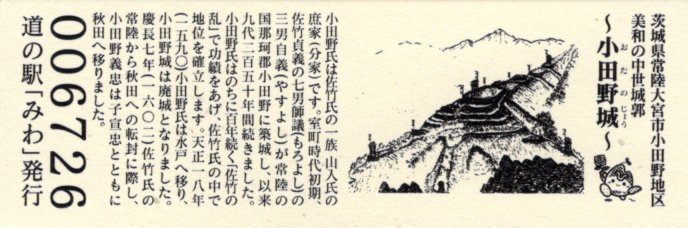 茨城県常陸大宮市小田野地区
美和の中世城郭
～小田野城～
おたのじょう
小田野氏は佐竹氏の一族 山入氏の
庶家(分家)です。室町時代初期、
佐竹貞義の七男師議(もろよし)の
三男自義(やすよし)が常陸の
国那珂郡小田野に築城し、以来
九代二百五十年間続きました。
小田野氏はのちに百年続く「佐竹の
乱」で功績をあげ、佐竹氏の中で
地位を確立します。天正一八年
(一五九〇)小田野氏は水戸へ移り、
小田野城は廃城となりました。
慶長七年(一六〇二)佐竹氏の
常陸から秋田への転封に際し、
小田野義忠は子宣忠とともに
秋田へ移りました。
006726
道の駅「みわ」発行